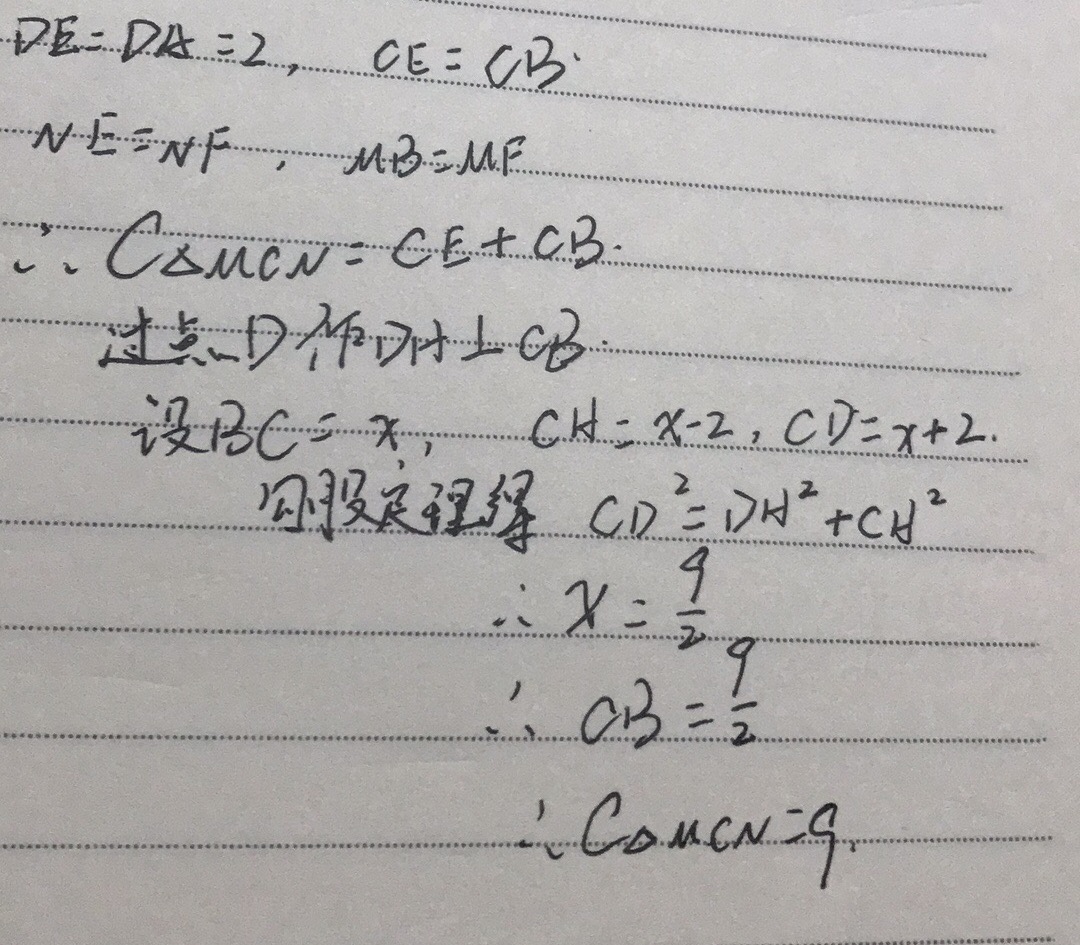 DE=DA=2, CE=CB.
NE=NF, MB=MF
∴ C△MCN=CE+CB.
过点D作DH⊥CB.
设BC=x, CH=x-2, CD=x+2.
勾股定理得 CD²=DH²+CH²
∴ x=9/2
∴ CB=9/2
∴ C△MCN=9.